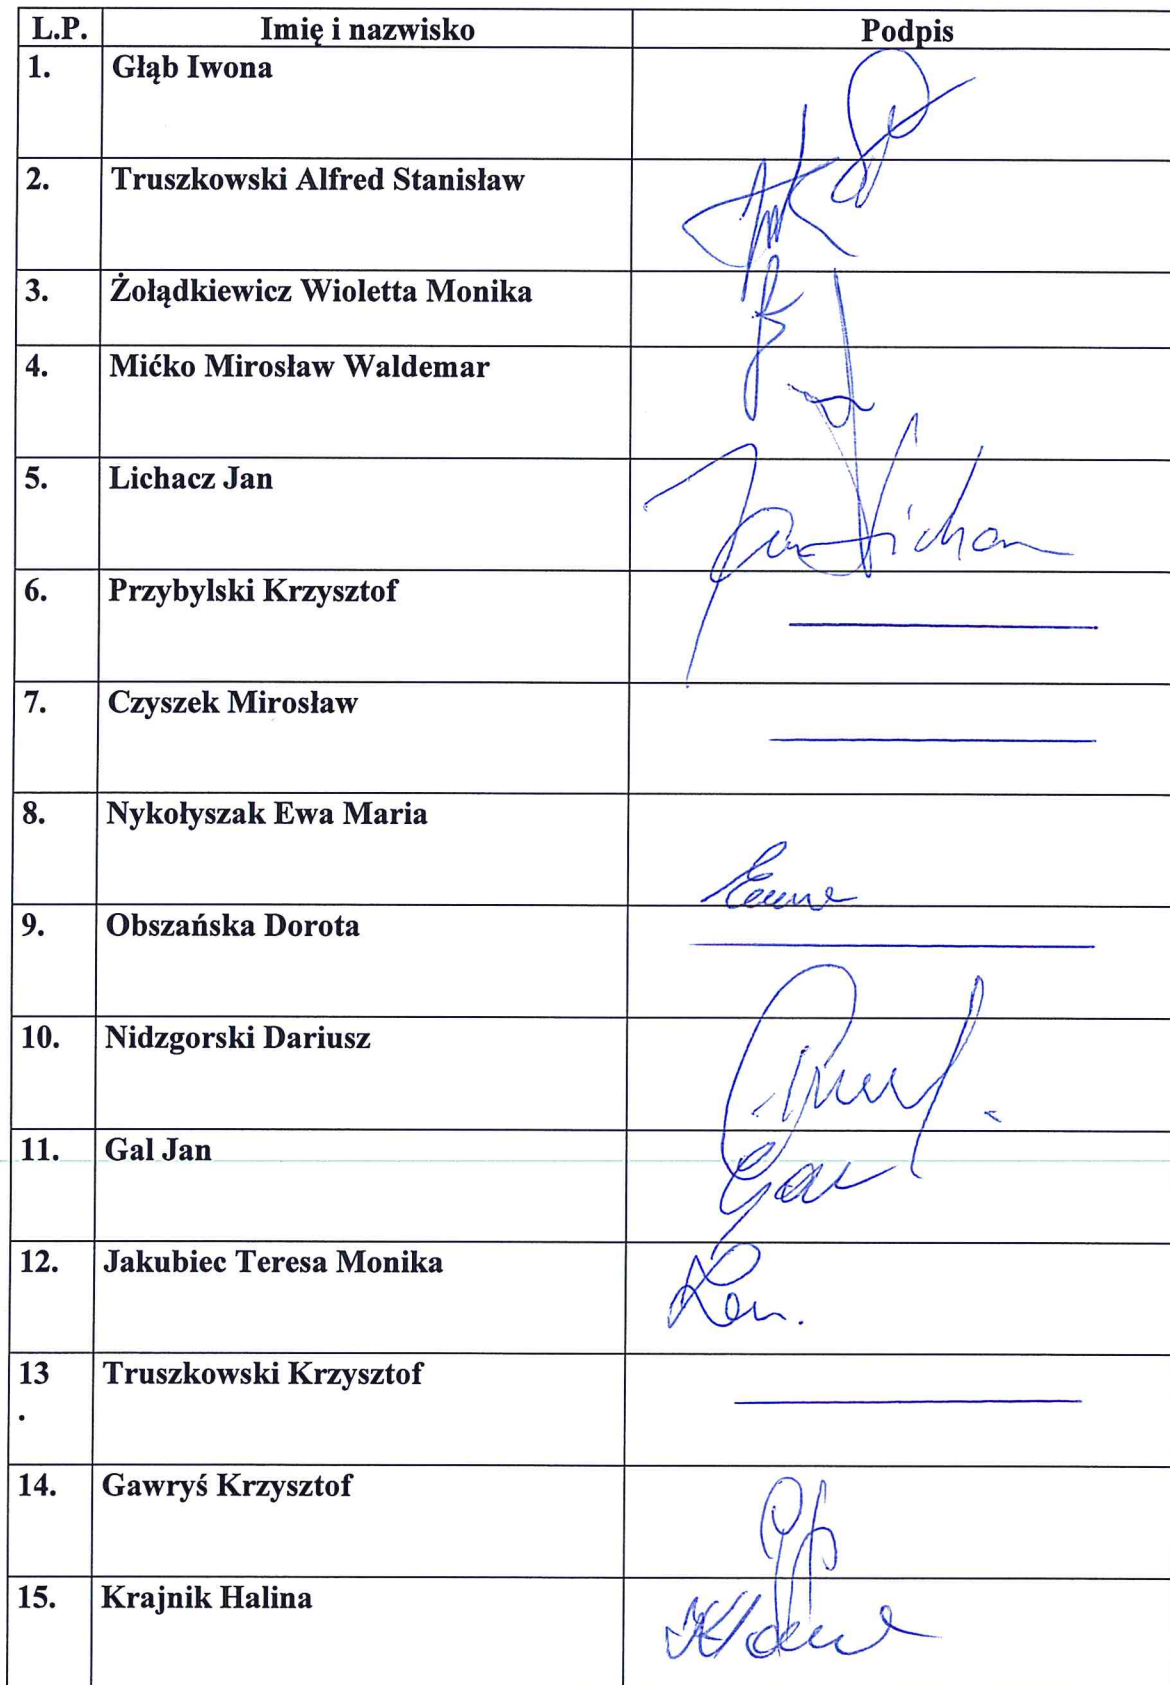 L.P. Imię i nazwisko Podpis
1. Głąb Iwona
2. Truszkowski Alfred Stanisław
3. Żołądkiewicz Wioletta Monika
4. Mićko Mirosław Waldemar
5. Lichacz Jan
6. Przybylski Krzysztof
7. Czyszek Mirosław
8. Nykołyszak Ewa Maria
9. Obszańska Dorota
10. Nidzgorski Dariusz
11. Gal Jan
12. Jakubiec Teresa Monika
13 Truszkowski Krzysztof
.
14. Gawryś Krzysztof
15. Krajnik Halina